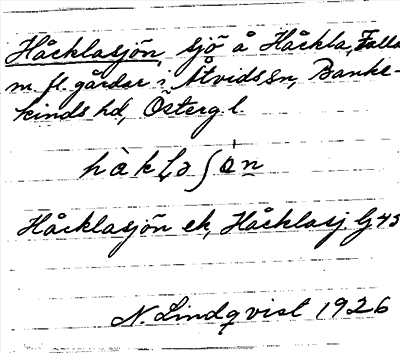 Håcklasjön, sjö å Håckla, Falla
m. fl. gårdar i Åtvids sn, Banke-
kinds hd, Österg. l.
Håcklasjön ek, Håcklasj. G 43
N. Lindqvist 1926